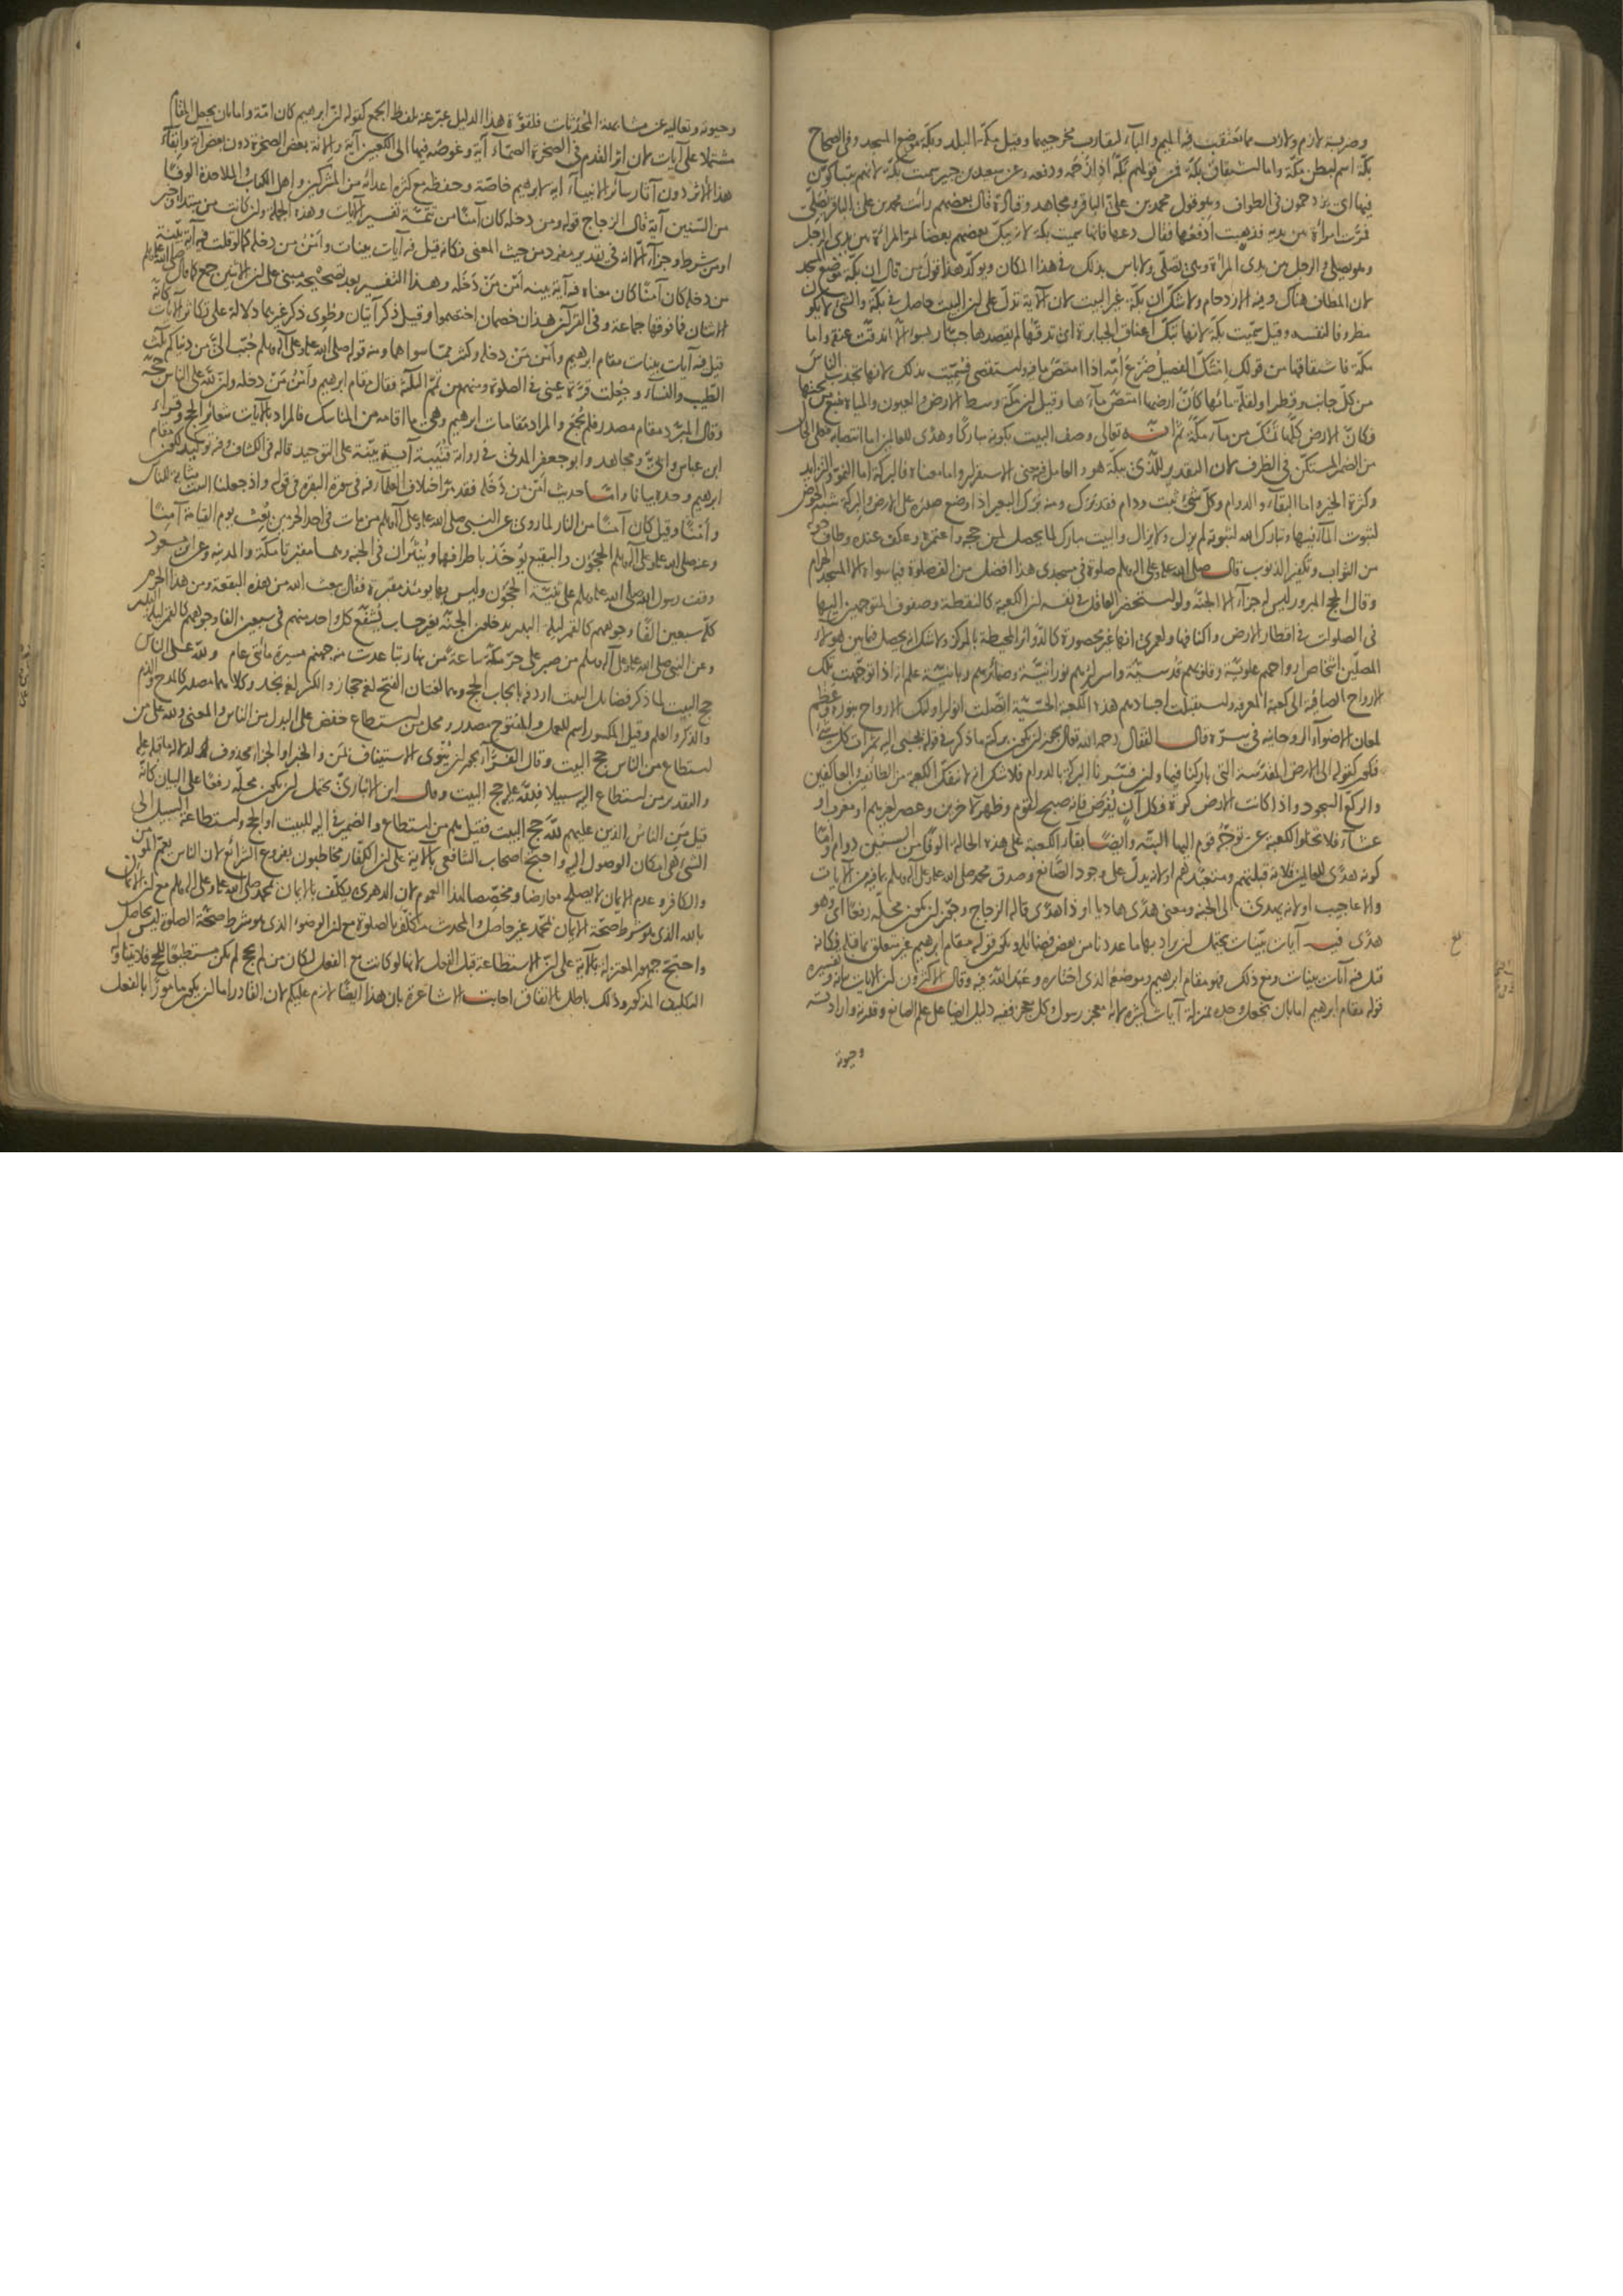 وضربة لازم ولازب مما تعتقب فيه الميم والباء لتقارب مخرجيهما وقيل مكة البلد وبكة موضع المسجد وفي الصحاح
بكة اسم لبطن مكة واما اشتقاق بكة فمن قولهم بكه اذا زحمه ودفعه وعن سعيد بن جبير سميت بكة لانهم يتباكون
فيها اي يزدحمون في الطواف وهو قول محمد بن علي الباقر ومجاهد وقتادة قال بعضهم رأيت محمد بن علي الباقر يصلي
فمرت امرأة بين يديه فذهبت ادفعها فقال دعها فانها سميت بكة لانه يبك بعضهم بعضا تمر المرأة بين يدي الرجل
وهو يصلي والرجل بين يدي المرأة وهي تصلي ولا باس بذلك في هذا المكان ويؤكد هذا قول من قال ان بكة موضع المسجد
لان المطاف هناك وفيه الازدحام ولا شك ان بكة غير البيت لان الآية تدل على ان البيت حاصل في بكة والشئ لا يكون
ظرفا لنفسه وقيل سميت بكة لانها تبك اعناق الجبابرة اي تدقها لم يقصدها جبار بسوء الا اندقت عنقه واما
مكة فاشتقاقها من قولك امتك الفصيل ضرع امه اذا امتص ما فيه واستقصى فسميت بذلك لانها تجذب الناس
من كل جانب وقطر او لقلة مائها كأن ارضها امتصت ماءها وقيل ان مكة وسط الارض والعيون والمياه تنبع من تحتها
فكان الارض كلها تمك من ماء مكة ثم انه تعالى وصف البيت بكونه مباركا وهدى للعالمين اما انتصابه فعلى الحال
من الضمير المستكن في الظرف لان التقدير للذي ببكة هو والعامل فيه معنى الاستقرار واما معناه فالبركة اما النمو والتزايد
وكثرة الخير واما البقاء والدوام وكل شئ ثبت ودام فقد برك ومنه برك البعير اذا وضع صدره على الارض والبركة شبه الحوض
لثبوت الماء فيها وتبارك الله لثبوته لم يزل ولا يزال والبيت مبارك لما يحصل لمن حجه واعتمره وعكف عنده وطاف حوله
من الثواب وتكفير الذنوب قال صلى الله عليه وعلى آله وسلم صلوة في مسجدي هذا افضل من الف صلوة فيما سواه الا المسجد الحرام
وقال الحج المبرور ليس له جزاء الا الجنة ولو استحضر العاقل في نفسه ان الكعبة كالنقطة وصفوف المتوجهين اليها
في الصلوات في اقطار الارض واكنافها ولعمري انها غير محصورة كالدوائر المحيطة بالمركز ولا شك انه يحصل فيما بين هؤلاء
المصلين اشخاص ارواحهم علوية وقلوبهم قدسية واسرارهم نورانية وضمائرهم ربانية علم انه اذا توجهت تلك
الارواح الصافية الى كعبة المعرفة واستقبلت اجسادهم هذه الكعبة الحسية اتصلت انوار اولئك الارواح بنوره وعظم
لمعان الاضواء الروحانية في سره قال القفال رحمه الله تعالى يجوز ان يكون بركته ما ذكر في قوله يجبى اليه ثمرات كل شئ
فيكون كقوله الى الارض المقدسة التي باركنا فيها وان فسرنا البركة بالدوام فلا شك انه لا تنفك الكعبة من الطائفين والعاكفين
والركع السجود واذا كانت الارض كرة فكل آن يفرض فانه صبح لقوم وظهر لآخرين وعصر لغيرهم او مغرب او
عشاء فلا تخلو الكعبة عن توجه قوم اليها البتة وايضا بقاء الكعبة على هذه الحالة الوفا من السنين دوام واما
كونه هدى للعالمين فلانه قبلتهم ومتعبدهم او لانه يدل على وجود الصانع وصدق محمد صلى الله عليه وعلى آله وسلم بما فيه من الآيات
والاعاجيب او لانه يهدي الى الجنة ومعنى هدى هاديا او ذا هدى قاله الزجاج وجوز ان يكون محله رفعا اي وهو
هدى فيه آيات بينات يحتمل ان يراد بها ما عددنا من بعض فضائله ويكون قوله مقام ابراهيم غير متعلق بما قبله فكانه
قيل فيه آيات بينات ومع ذلك فهو مقام ابراهيم وموضعه الذي اختاره وعبد الله فيه وقال الاكثرون ان الآيات بيانه وتفسيره
قوله مقام ابراهيم اما بان تجعل وحده بمنزلة آيات كثيرة لانه معجز رسول وكل معجز ففيه دليل ايضا على علم الصانع وقدرته وارادته
وحيوته
وحيوته وتعاليه عن مشابهة المحدثات فلقوة هذا الدليل عبر عنه بلفظ الجمع كقوله ان ابرهيم كان امة واما بان يجعل المقام
مشتملا على آيات لان اثر القدم في الصخرة الصماء آية وغوصه فيها الى الكعبين آية والانة بعض الصخرة دون بعض آية وابقاء
هذا الاثر دون آثار سائر الانبياء آية لابرهيم خاصة وحفظه مع كثرة اعدائه من المشركين واهل الكتاب والملاحدة الوفا
من السنين آية قال الزجاج قوله ومن دخله كان آمنا من تتمة تفسير الآيات وهذه الجملة وان كانت من مبتدأ وخبر
او من شرط وجزاء الا انه في تقدير مفرد من حيث المعنى فكانه قيل فيه آيات بينات وامن من دخله كما لو قلت فيه آية بينة
من دخله كان آمنا كان معناه فيه آية بينة امن من دخله وهذا التفسير بعد تصحيحه مبني على ان الاثنين جمع كما قال صلى الله عليه وسلم
الاثنان فما فوقها جماعة وفي القرآن هذان خصمان اختصموا وقيل ذكر آيتان وطوى ذكر غيرهما دلالة على تكاثر الآيات كانه
قيل فيه آيات بينات مقام ابرهيم وأمن من دخله وكثير مما سواهما ومنه قوله صلى الله عليه وعلى آله وسلم حبب الي من دنياكم ثلث
الطيب والنساء وجعلت قرة عيني في الصلوة ومنهم من تمم الثلثة فقال مقام ابرهيم وأمن من دخله وان لله على الناس حجه
وقال المبرد مقام مصدر فلم يجمع والمراد مقامات ابرهيم وهي ما اقامه من المناسك فالمراد بالآيات شعائر الحج وقراءة
ابن عباس وابي ومجاهد وابو جعفر المدني في رواية قتيبة آية بينة على التوحيد قاله في الكشاف وفيه توكيد لكون مقام
ابرهيم وحده بيانا واما حديث امن من دخله فقد مر اختلاف العلماء فيه في سورة البقرة في قوله واذ جعلنا البيت مثابة للناس
وأمنا وقيل كان آمنا من النار لما روي عن النبي صلى الله عليه وعلى آله وسلم من مات في احد الحرمين بعث يوم القيامة آمنا
وعنه صلى الله عليه وعلى آله وسلم الحجون والبقيع يؤخذ باطرافها وينثران في الجنة وهما مقبرتا مكة والمدينة وعن ابن مسعود
وقف رسول الله صلى الله عليه وسلم على ثنية الحجون وليس بها يومئذ مقبرة فقال يبعث الله من هذه البقعة ومن هذا الحرم
كله سبعين الفا وجوههم كالقمر ليلة البدر يدخلون الجنة بغير حساب يشفع كل واحد منهم في سبعين الفا وجوههم كالقمر ليلة البدر
وعن النبي صلى الله عليه وعلى آله وسلم من صبر على حر مكة ساعة من نهار تباعدت منه جهنم مسيرة مائتي عام ولله على الناس
حج البيت لما ذكر فضائل البيت اردفه بايجاب الحج وهما لغتان الفتح لغة حجاز والكسر لغة نجد وكلاهما مصدر كالمدح والذم
والذكر والعلم وقيل المكسور اسم للعمل والمفتوح مصدر ومحل من استطاع خفض على البدل من الناس والمعنى ولله على من
استطاع من الناس حج البيت وقال الفراء يجوز ان ينوى الاستيناف بمن والخبر او الجزاء محذوف لدلالة ما قبله عليه
والتقدير من استطاع اليه سبيلا فلله عليه حج البيت وقال ابن الانباري يحتمل ان يكون محله رفعا على البيان كانه
قيل من الناس الذين عليهم لله حج البيت فقيل هم من استطاع والضمير في اليه للبيت او الحج واستطاعة السبيل الى
الشئ هي امكان الوصول اليه واحتج اصحاب الشافعي بالآية على ان الكفار مخاطبون بفروع الشرائع لان الناس يعم المؤمن
والكافر وعدم الايمان لا يصلح معارضا ومخصصا لهذا العموم لان الدهري مكلف بالايمان بمحمد صلى الله عليه وعلى آله وسلم مع ان الايمان
بالله الذي هو شرط صحة الايمان بمحمد غير حاصل والمحدث مكلف بالصلوة مع ان الوضوء الذي هو شرط صحة الصلوة ليس بحاصل
واحتج جمهور المعتزلة بالآية على ان الاستطاعة قبل الفعل لانها لو كانت مع الفعل لكان من لم يحج لم يكن مستطيعا للحج فلا يتناوله
التكليف المذكور وذلك باطل بالاتفاق اجابت الاشاعرة بان هذا ايضا لازم عليكم لان القادر اما ان يكون مأمورا بالفعل